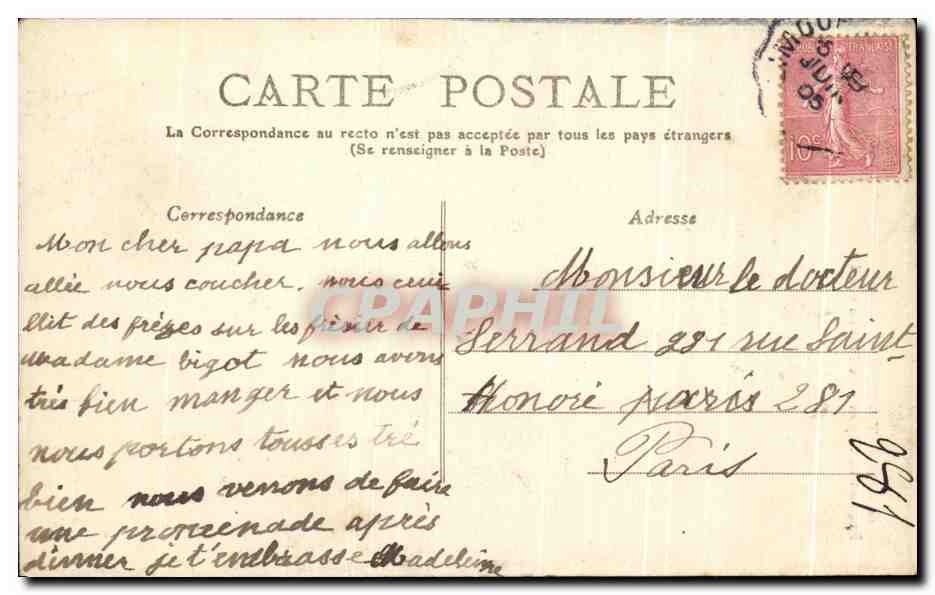 CARTE POSTALE
La Correspondance au recto n'est pas acceptée par tous les pays étrangers
(Se renseigner à la Poste)
Correspondance
Mon cher papa nous allons
allée nous coucher. nous ceuir
llit des frèzes sur les frèsier de
madame bigot nous avons
très bien manger et nous
nous portons tousses trè
bien nous venons de faire
une promenade après
dinner je t'embrasse Madeleine
Adresse
Monsieur le docteur
Serrand 281 rue Saint-
Honoré paris 281
Paris
10c
JUIN
05
CPAPHIL